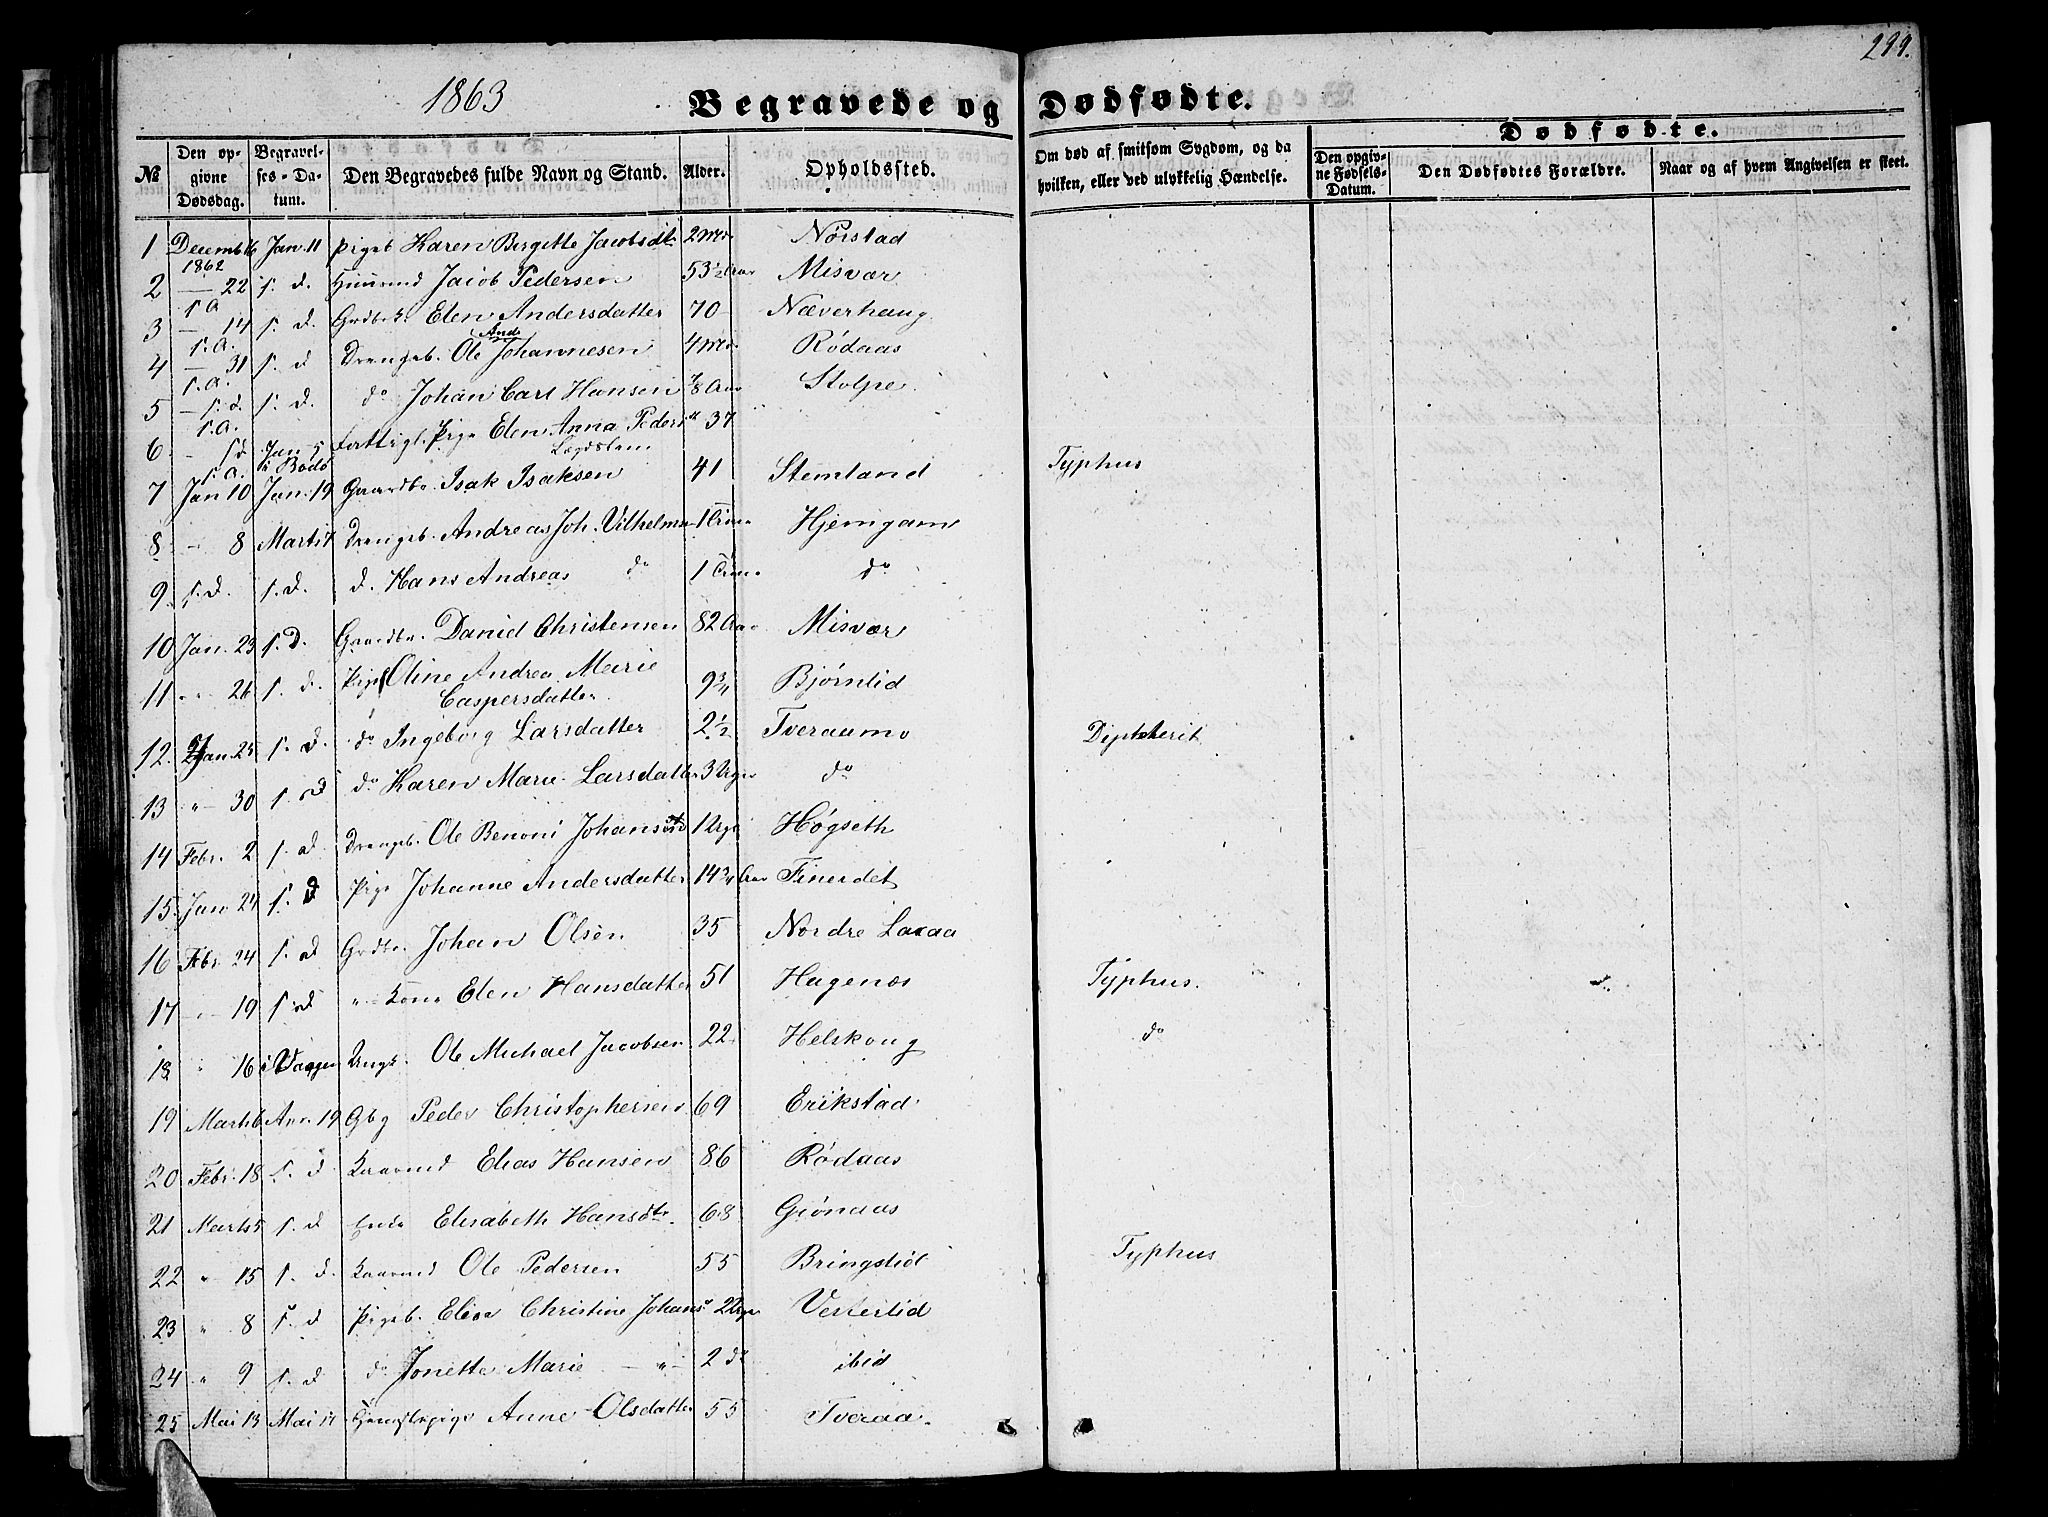 299.
1863
Begravede og Dødfødte.
Dødfødte.
№ Den opgivne Dødsdag. Begravelses-Datum. Den Begravedes fulde Navn og Stand. Alder. Opholdssted. Om død af smitsom Sygdom, og da hvilken, eller ved ulykkelig Hændelse. Den opgivne Fødsels-Datum. Den Dødfødtes Forældre. Naar og af hvem Angivelsen er skeet.
1 Decemb 16 1862 Jan. 11 Pigeb Karen Bergette Jacobsdt 2 Md. Nørstad
2 — 22 s. A s. d. Huusmd Jacob Pedersen 53 1/2 Aar Misvær
3 — 14 s. A. s. d. Grdbr. Elen Andersdatter 70 Næverhaug
4 — 31 s. A. s. d Drengeb. Ole And Johannesen 4 Md. Rødaas
5 — s. d. s. A. s. d. do Johan Carl Hansen 7/8 Aar Stolpe
6 - sd s. A. Jan 5 i Bodø Pige Elen Anna Peders dt 37
Lægdslem
7 Jan 10 Jan. 19 Gaardbr. Isak Isaksen 41 Stemland Typhus
8 — 8 Marts 17 Drengeb. Andreas Joh. Vilhelm 1 Hjemgam
9 s. d. s. d. d. Hans Andreas do 1 do
10 Jan. 23 s. d. Gaardbr. Daniel Christensen 82 Aar Misvær
11 " 26 s. d. Pige Oline Andrea Marie 9 3/4 Bjørnlid
Caspersdatter
12. Jan. 25 s. d. do Ingeborg Larsdatter 2 1/2 Tveraamo Diphtherit
13 " 30 s. d do Karen Marie Larsdatter 3 Uger do
14 Febr. 2 s. d. Drengeb. Ole Benoni Johans 1 Uge Høgseth
15 Jan 24 s. d Pige Johanne Andersdatter 14 3/4 Aar Finerdet
16 Febr 24 s. d Grdbr. Johan Olsen 35 Nordre Laxaa
17 " 19 s. d " Kone Elen Hansdatter 51 Hagenæs Typhus.
18 " 16 i Vaagen Ungk. Ole Michael Jacobsen 22 Helskoug do
19 Marts 6 Apr. 19 Gbg Peder Christophersen 69 Erikstad
20 Febr. 18 s. d Kaarmd Elias Hansen 86 Rødaas
21 Marts 5 s. d Enke Elisabeth Hansdtr. 68 Grønaas
22 " 15 s. d. Kaarmd Ole Pedersen 55 Bringslid Typhus
23 " 8 s. d Pigeb. Elisa Christine Johans 2 Uger Vesterlid
24 " 9 s. d do Jonette Marie — " — 2 do ibid
25 Mai 13 Mai 17 Anne Olsdatter 55 Tveraa.